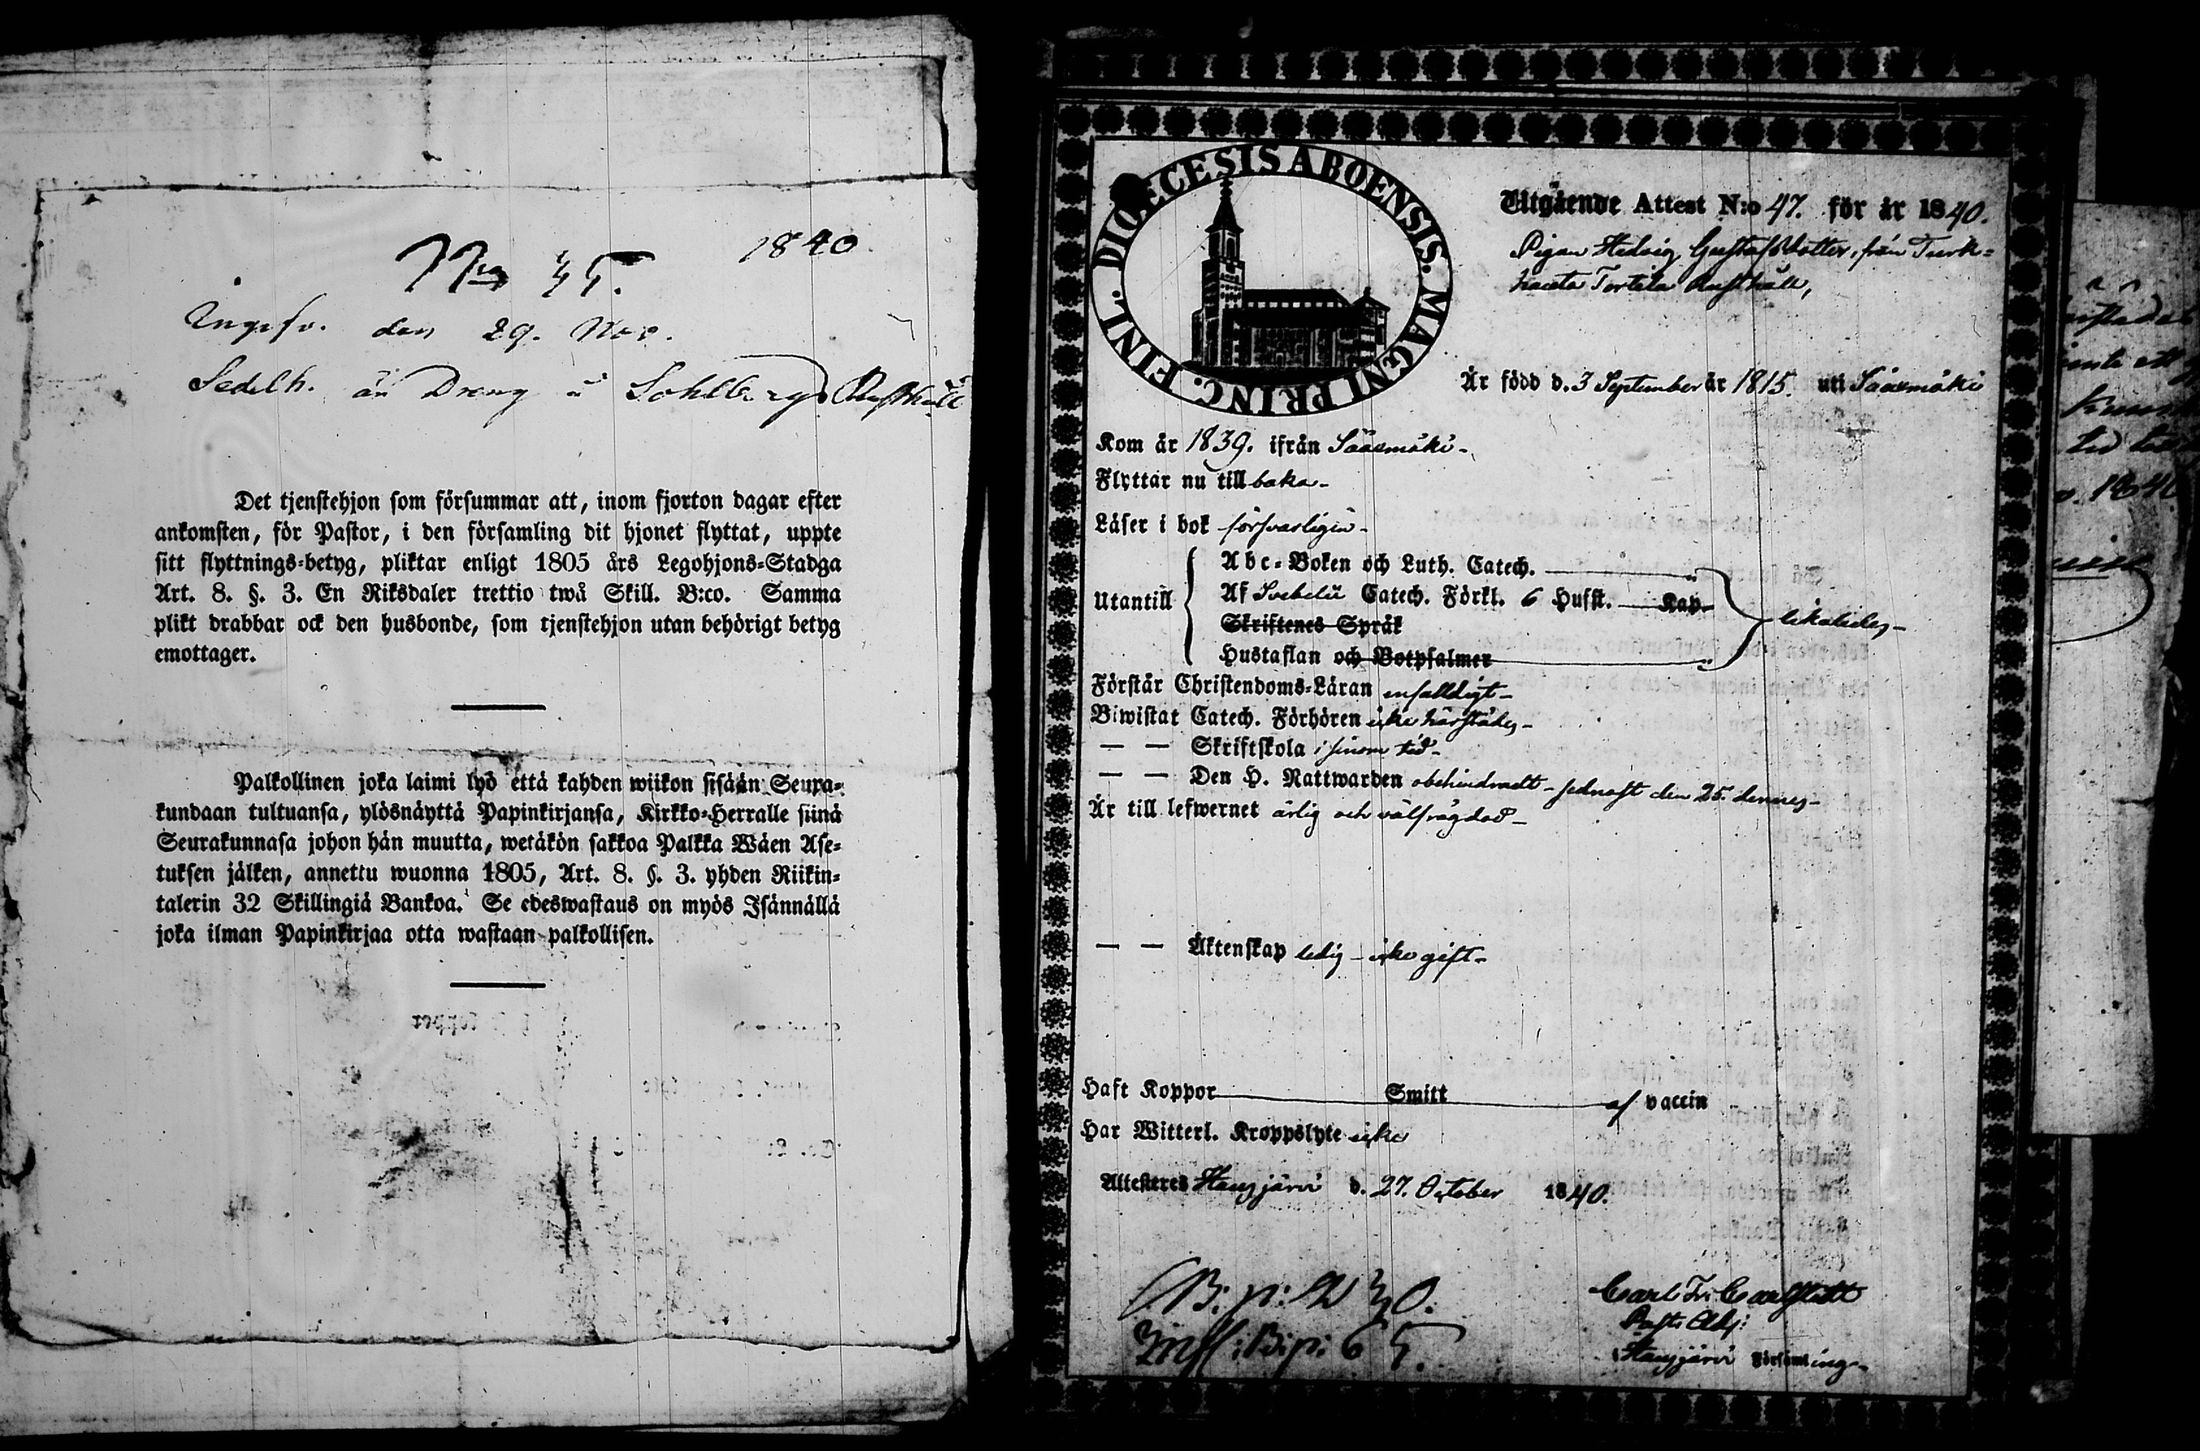 1840
Nro 35.
den 29. Nov.
Sedelh. än Dreng Sohlbergs Rusthåll
Det tjenstehjon som försummar att, inom fjorton dagar efter
ankomsten, för Pastor, i den församling dit hjonet flyttat, uppte
sitt flyttnings-betyg, pliktar enligt 1805 års Legohjons-Stadga
Art. 8. §. 3. En Riksdaler trettio twå Skill. B:co. Samma
plikt drabbar ock den husbonde, som tjenstehjon utan behörigt betyg
emottager.
Palkollinen joka laimi lyö että kahden wiikon sisään Seura-
kundaan tultuansa, ylösnäyttä Papinkirjansa, Kirkko-Herralle siinä
Seurakunnasa johon hän muutta, wetäkön sakkoa Palkka Wäen Ase-
tuksen jälken, annettu wuonna 1805, Art. 8. §. 3. yhden Riikin-
talerin 32 Skillingiä Bankoa. Se edeswastaus on myös Isännällä
joka ilman Papinkirjaa otta wastaan palkollisen.
DIOECESIS ABOENSIS. MAGNI PRINC. FINL.
Utgående Attest N:o 47. för år 1840.
Pigan Hedvig Gustafsdotter, från Turk-
hauta Tortila Rusthåll,
Är född d. 3 September år 1815. uti Sääxmäki
Kom år 1839. ifrån Sääxmäki-
Flyttar nu till baka-
Läser i bok försvarligen-
Abc-Boken och Luth. Catech.
Utantill
Af Svebelii Catech. Förkl. 6 Hufst. Kap.
likaledes-
Skriftenes Språk
Hustaflan och Botpsalmer
Förstår Christendoms-Läran enfalldigt-
Biwistat Catech. Förhören icke härstädes-
— — Skriftskola i sinom tid-
— — Den H. Nattwarden obehindradt- sednast den 25. dennes-
Är till lefwernet ärlig och välfrägdad-
— — Äktenskap ledig - icke gift-
Haft Koppor Smitt af vaccin
Har Witterl. Kroppslyte icke
Attesteras Hausjärvi d. 27. October 1840.
B: p: 230.
Infl: B: p: 65.
Carl Fr: Carlstedt
Past: Adj:
Hausjärvi Församling-